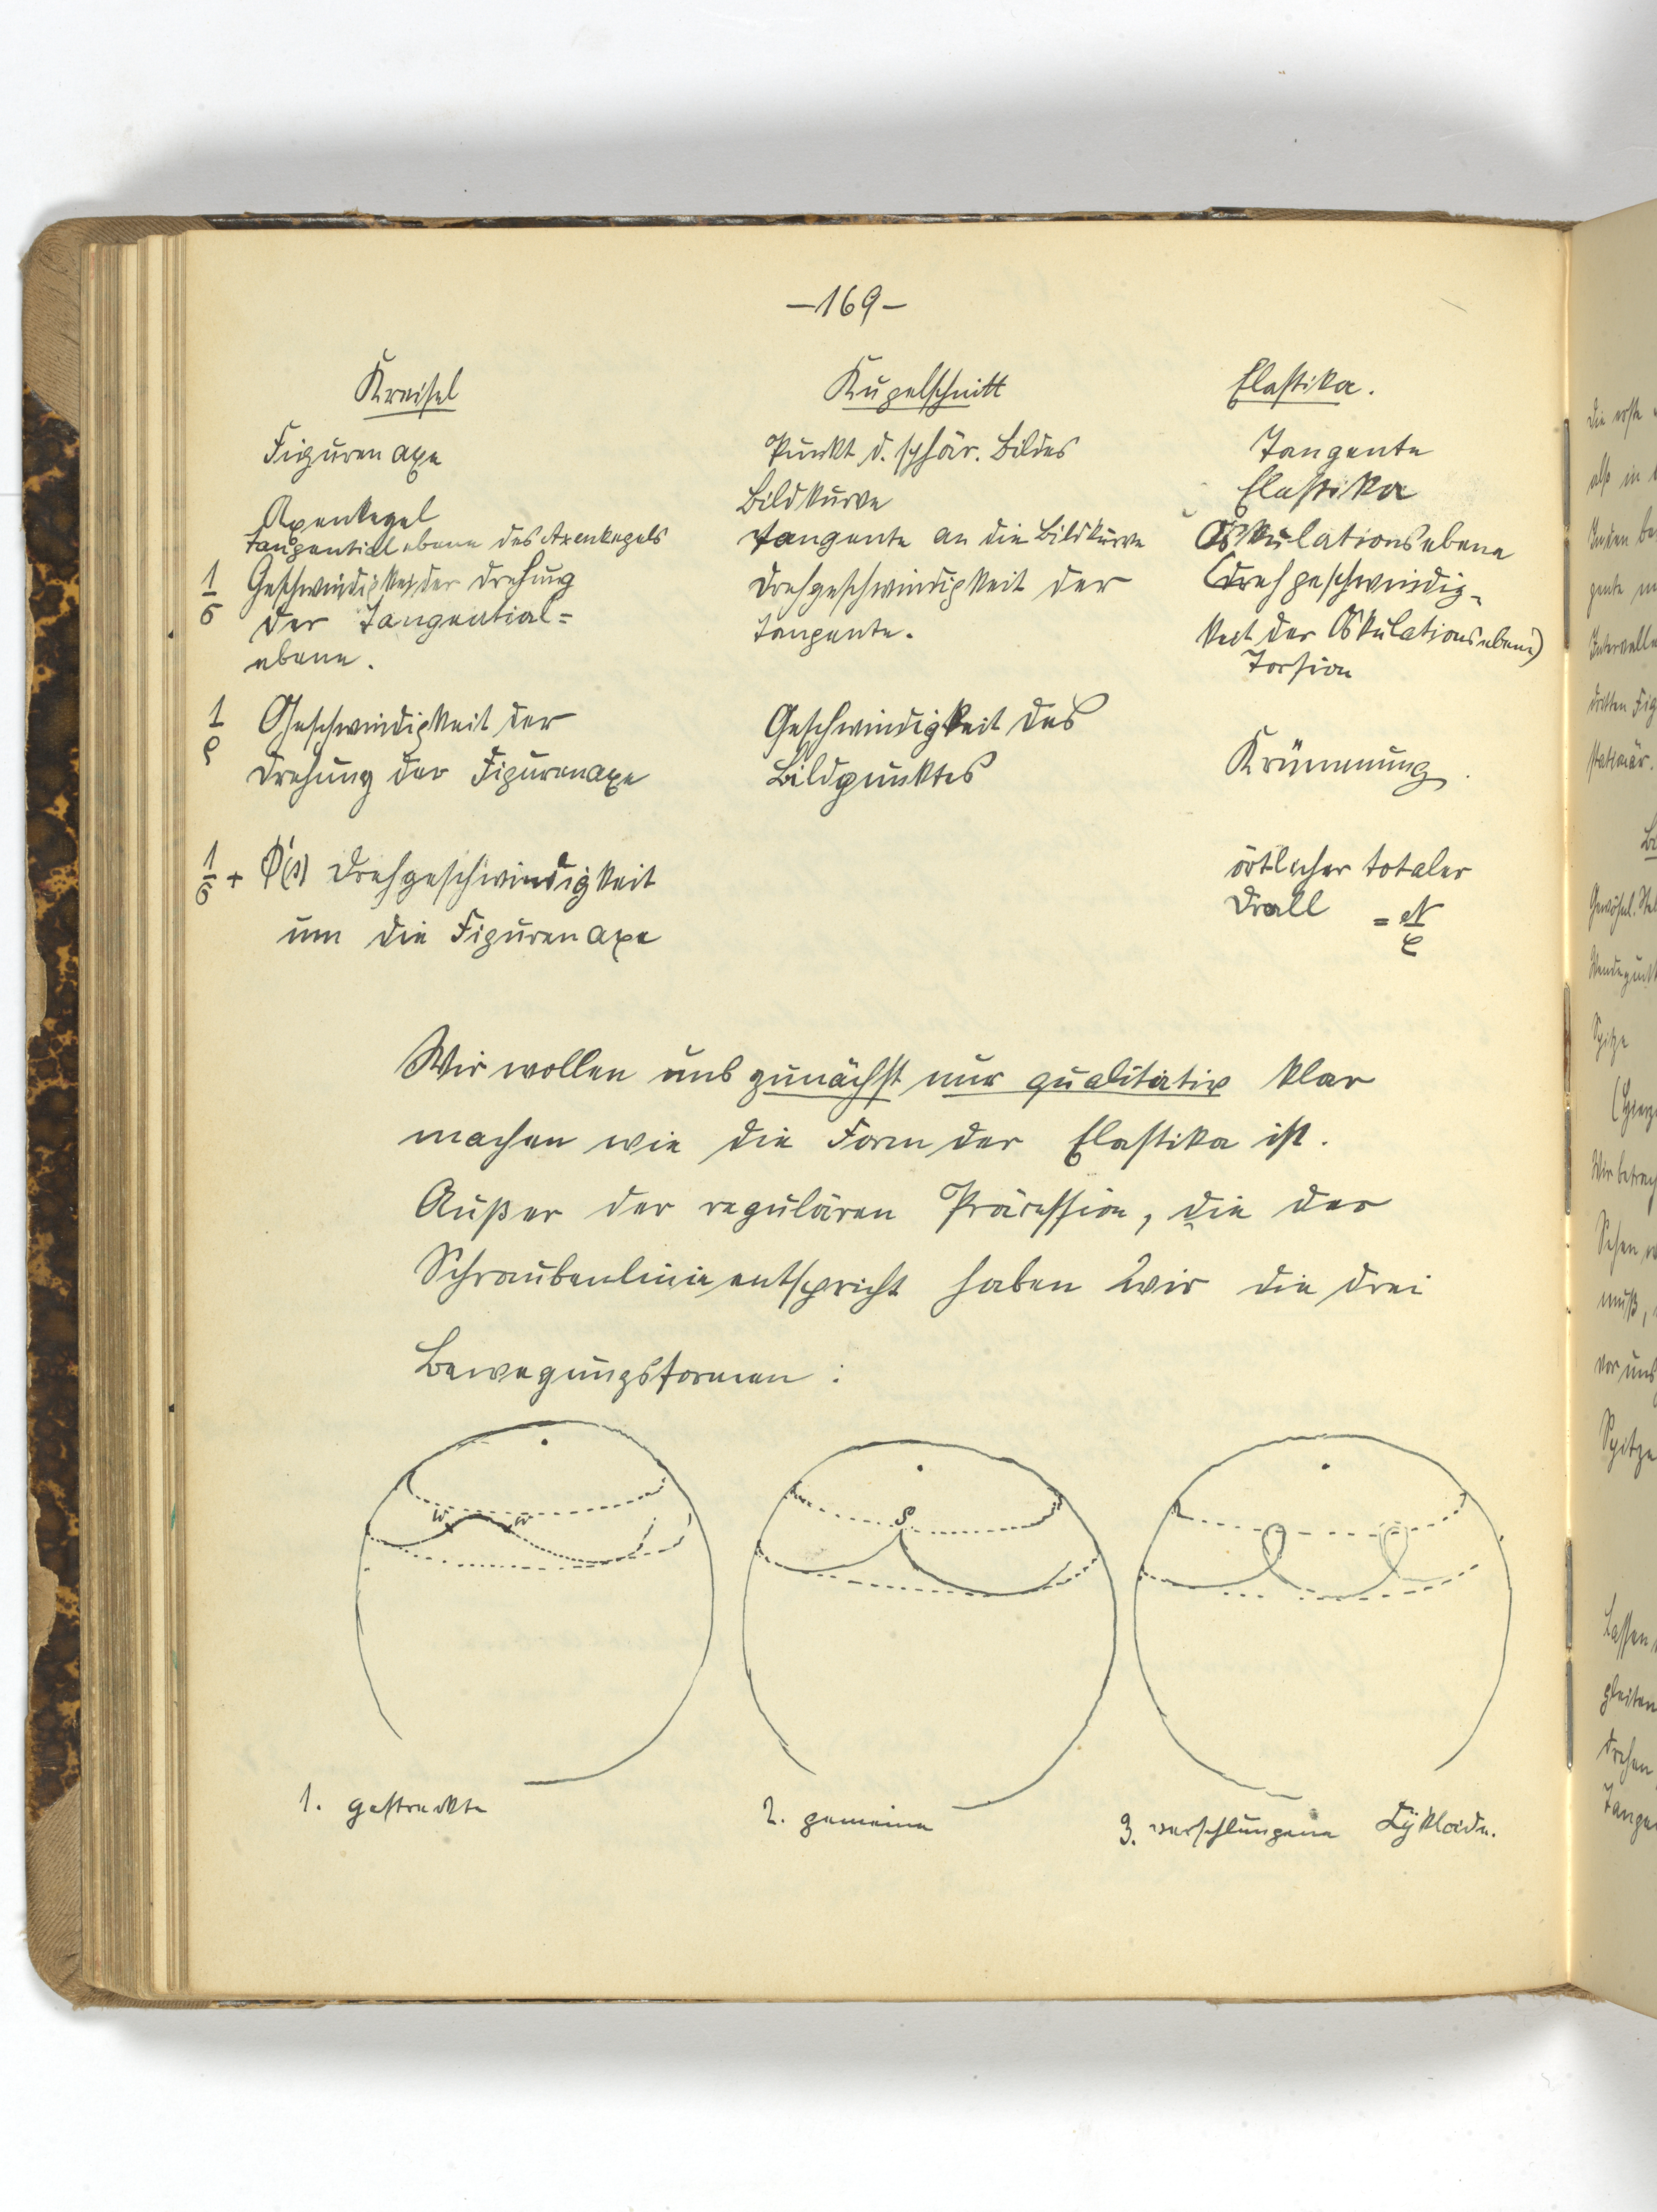 –169–
Kreisel Kugelschnitt Elastika.
Figurenaxe Punkt d. sphär. Bildes Tangente
Axenkegel Bildkurve Elastika
Tangentialebene des Axenkegels Tangente an die Bildkurve Oskulationsebene
1/σ Geschwindigkeit der Drehung Drehgeschwindigkeit der (Drehgeschwindig-
der Tangential= Tangente. keit der Oskulationsebene)
ebene. Torsion
1/ρ Geschwindigkeit der Geschwindigkeit des
Drehung der Figurenaxe Bildpunktes Krümmung.
1/σ + Φ'(s) Drehgeschwindigkeit örtlicher totaler
um die Figurenaxe Drall = N/C
Wir wollen uns zunächst nur qualitativ klar
machen wie die Form der Elastika ist.
Außer der regulären Präcession, die der
Schraubenlinie entspricht haben wir die drei
Bewegungsformen:
w w S
1. gestreckte 2. gemeine 3. verschlungene Zykloide.